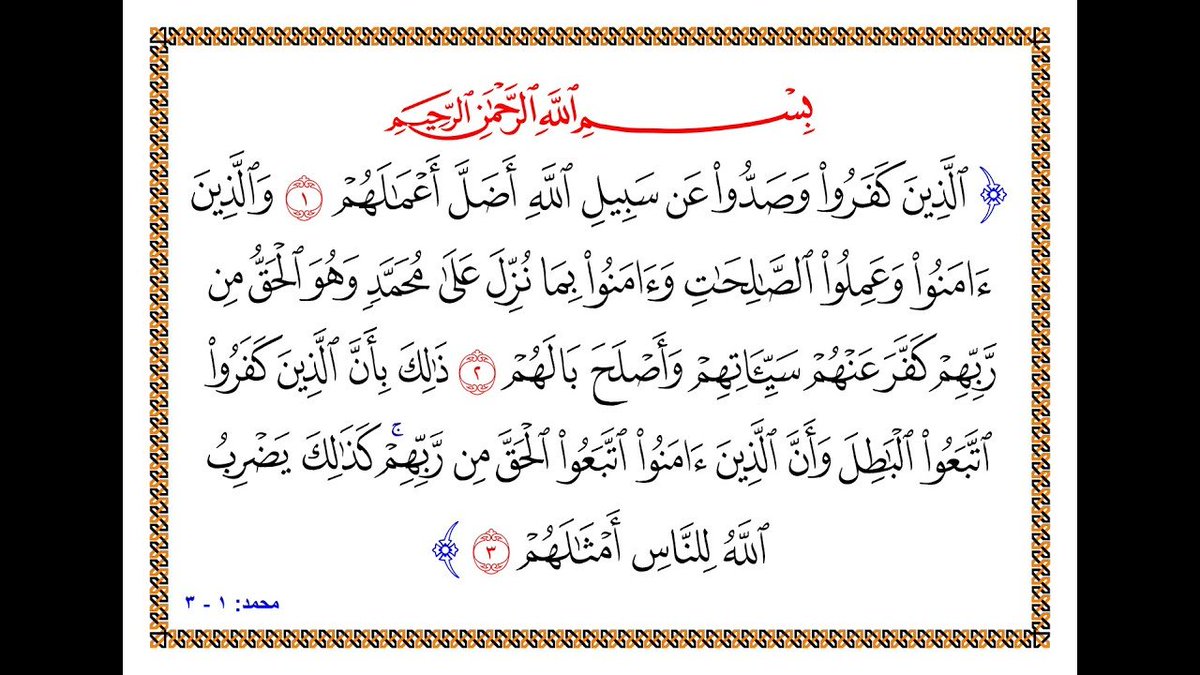 بِسْمِ ٱللَّهِ ٱلرَّحْمَٰنِ ٱلرَّحِيمِ
﴿ ٱلَّذِينَ كَفَرُوا۟ وَصَدُّوا۟ عَن سَبِيلِ ٱللَّهِ أَضَلَّ أَعْمَٰلَهُمْ ١ وَٱلَّذِينَ
ءَامَنُوا۟ وَعَمِلُوا۟ ٱلصَّٰلِحَٰتِ وَءَامَنُوا۟ بِمَا نُزِّلَ عَلَىٰ مُحَمَّدٍ وَهُوَ ٱلْحَقُّ مِن
رَّبِّهِمْ كَفَّرَ عَنْهُمْ سَيِّـَٔاتِهِمْ وَأَصْلَحَ بَالَهُمْ ٢ ذَٰلِكَ بِأَنَّ ٱلَّذِينَ كَفَرُوا۟
ٱتَّبَعُوا۟ ٱلْبَٰطِلَ وَأَنَّ ٱلَّذِينَ ءَامَنُوا۟ ٱتَّبَعُوا۟ ٱلْحَقَّ مِن رَّبِّهِمْ ۚ كَذَٰلِكَ يَضْرِبُ
ٱللَّهُ لِلنَّاسِ أَمْثَٰلَهُمْ ٣ ﴾
محمد: ١ - ٣